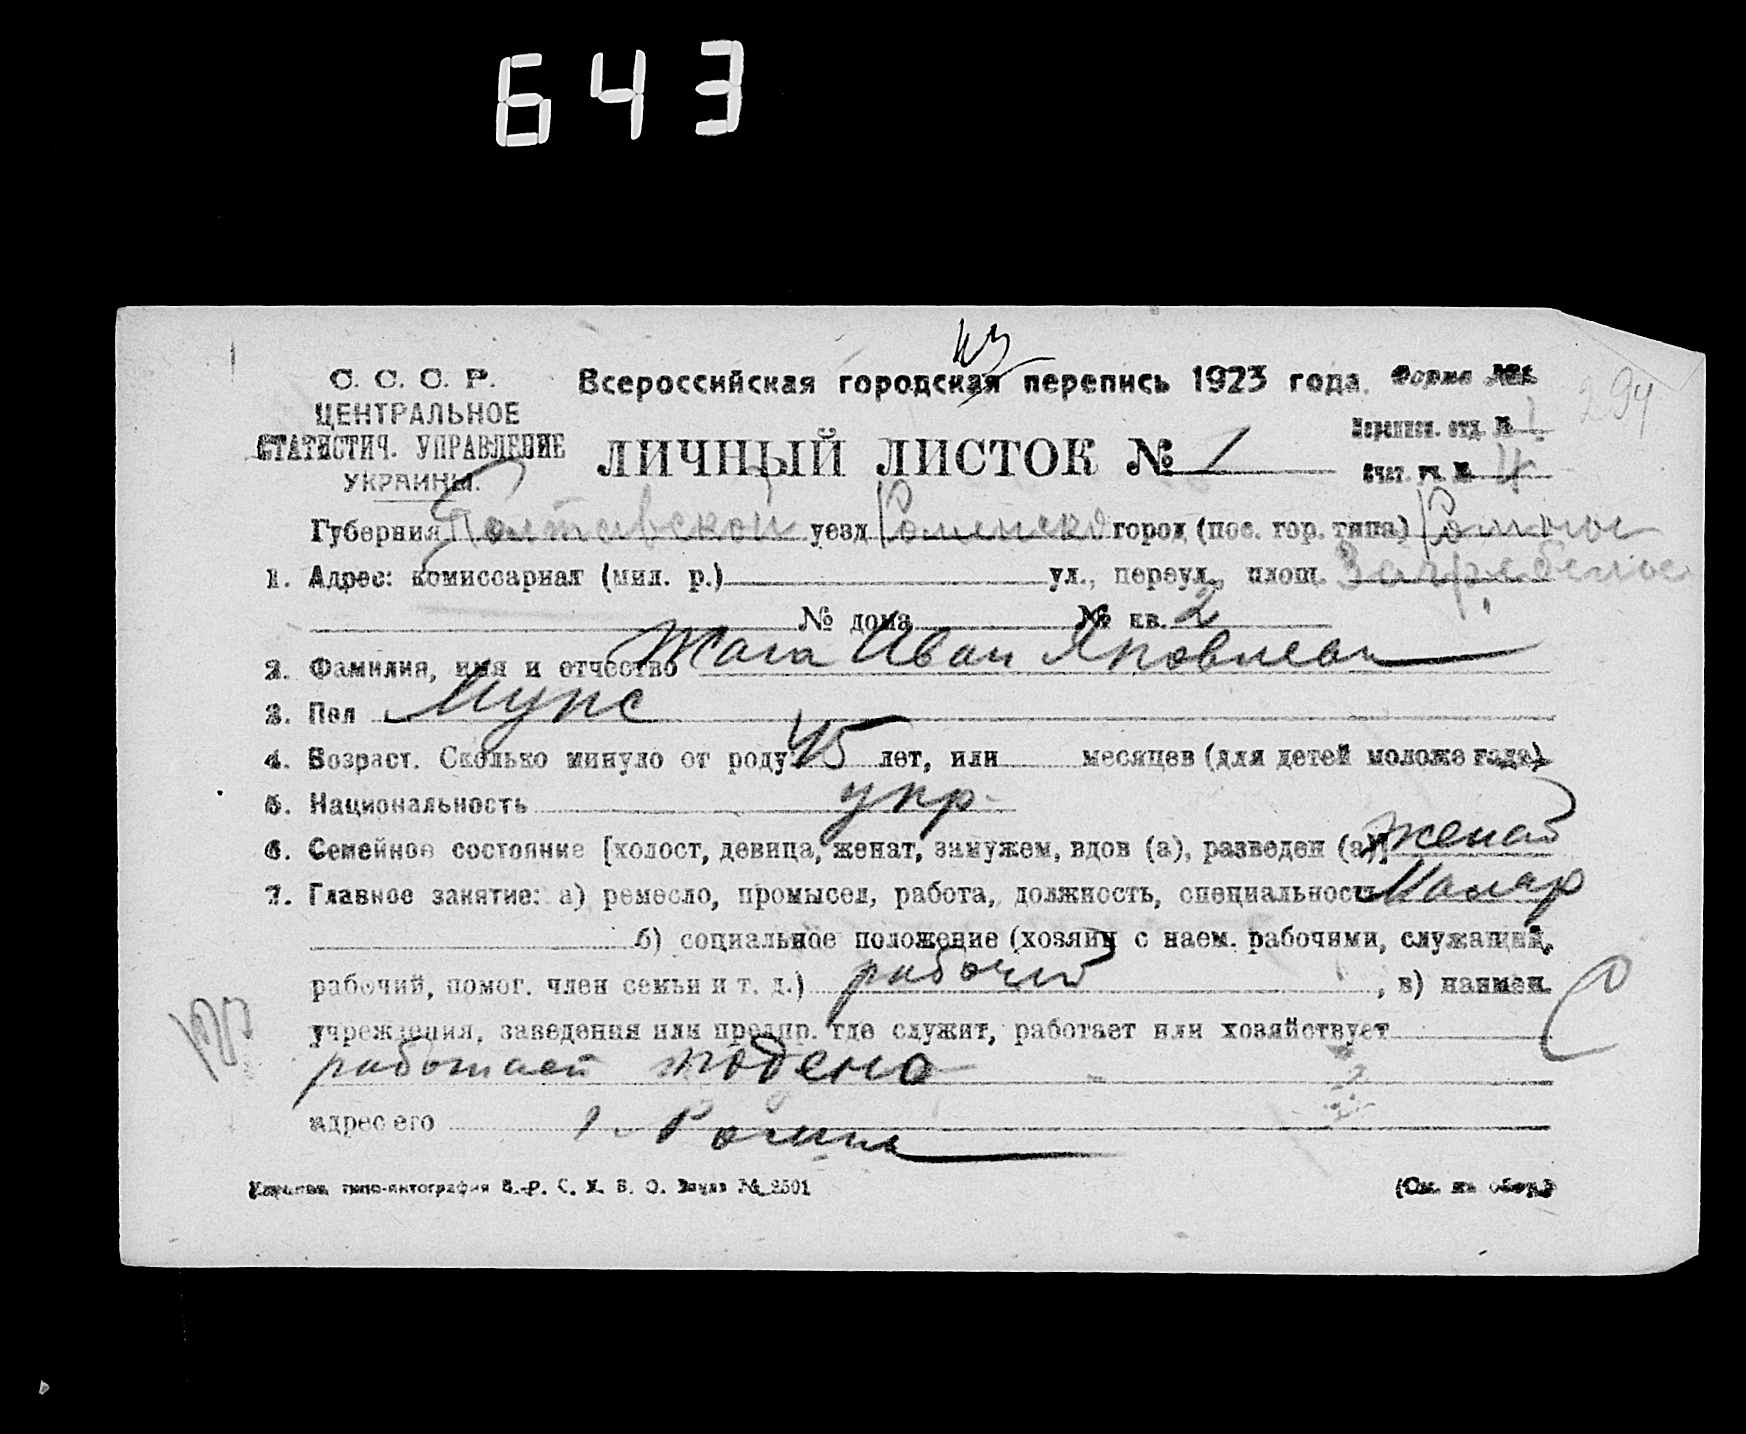 643
43
С. С. С. Р.
ЦЕНТРАЛЬНОЕ
СТАТИСТИЧ. УПРАВЛЕНИЕ
УКРАИНЫ.
Всероссийская городская перепись 1923 года.
Форма №1
294
ЛИЧНЫЙ ЛИСТОК № 1
Переписн. отд. № 1
Счет. уч. № 4
Губерния Полтавской уезд Роменско город (пос. гор. типа) Ромны
1. Адрес: комиссариат (мил. р.) ул., переул., площ. Загребелье
№ дома № кв. 2
2. Фамилия, имя и отчество Иван Яковлевич
3. Пол Мужс
4. Возраст. Сколько минуло от роду 45 лет, или месяцев (для детей моложе года)
5. Национальность укр-
6. Семейное состояние [холост, девица, женат, замужем, вдов (а), разведен (а)] женат
7. Главное занятие: а) ремесло, промысел, работа, должность, специальность Маляр
б) социальное положение (хозяин с наем. рабочими, служащий,
рабочий, помог. член семьи и т. д.) рабочий , в) наимен.
учреждения, заведения или предпр. где служит, работает или хозяйствует
работает
адрес его г. Ромны
типо-литография Ю.-Р. С. Х. В. О. Заказ № 2501
(См. на обор.)